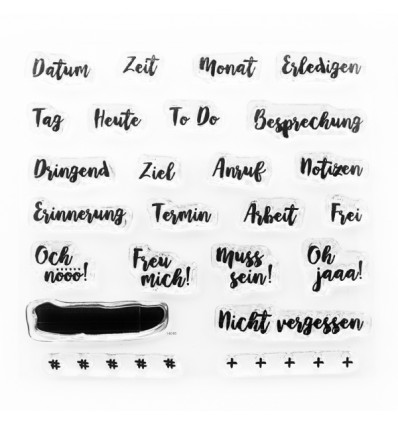 Datum Zeit Monat Erledigen
Tag Heute To Do Besprechung
Dringend Ziel Anruf Notizen
Erinnerung Termin Arbeit Frei
Och nöööö! Freu mich! Muss sein! Oh jaaa!
Nicht vergessen
# # # # # + + + + +